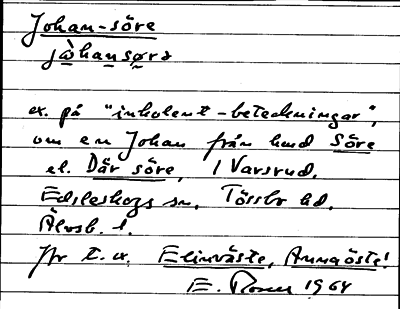 Johan-söre
jòhansørə
ex. på "inkolent-beteckningar",
om en Johan från hmd Söre
el. Där söre, i Varsrud.
Edsleskogs sn. Tössbo hd.
Älvsb. l.
Jfr t.ex. Elinväste, Annaöste!
E. 1964